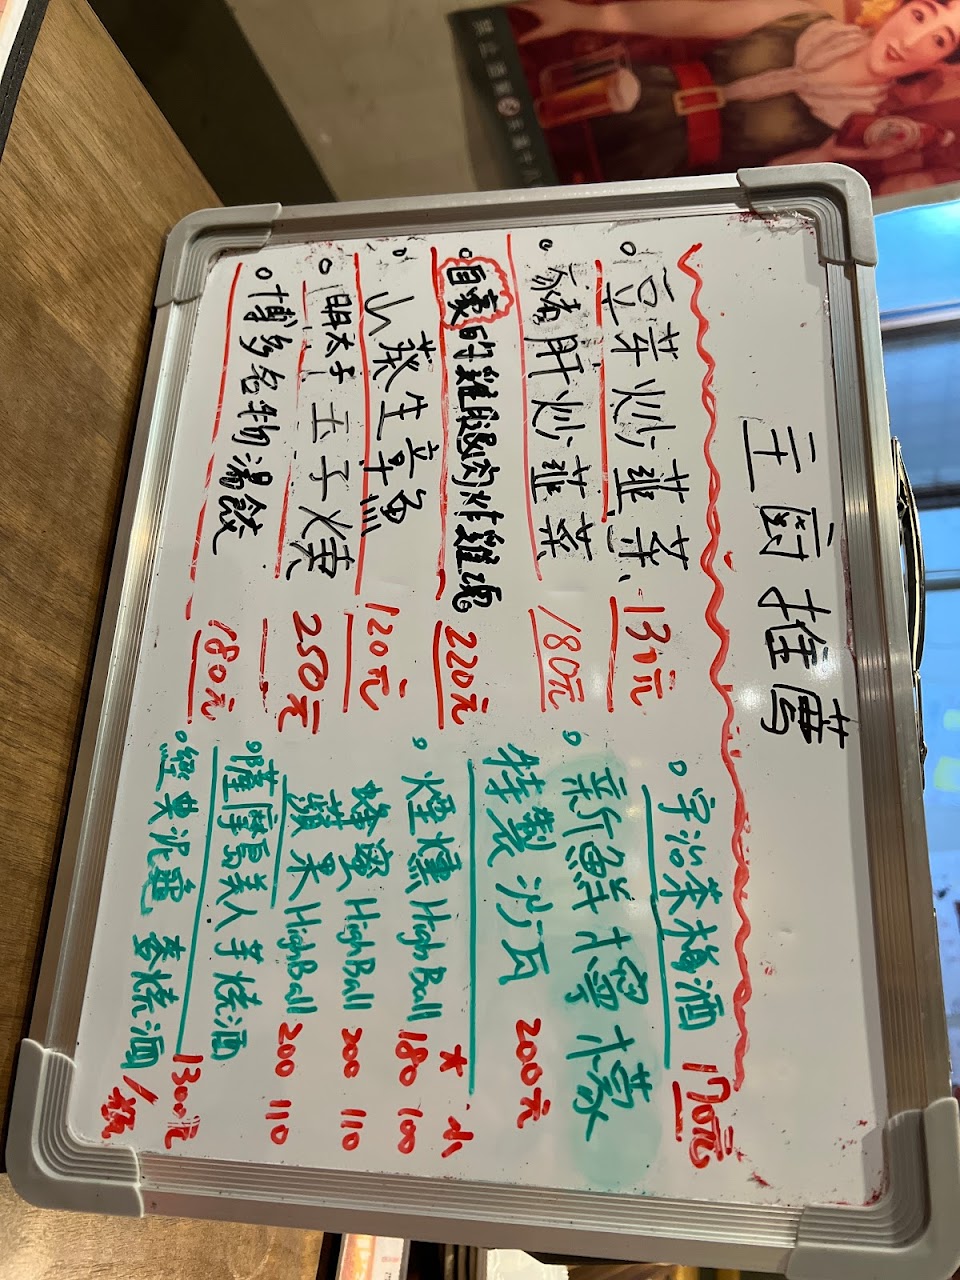 主廚推薦
。豆芽炒韮菜 130元
。豬肝炒韮菜 180元
。自豪的雞腿肉炸雞塊 220元
。山葵生章魚 120元
。明太子玉子燒 250元
。博多名物湯餃 180元
。宇治茶梅酒 170元
。新鮮檸檬
特製沙瓦 200元
大 小
。煙燻HighBall 180 100
蜂蜜HighBall 200 110
蘋果HighBall 200 110
。薩摩島美人芋燒酒
。經典泥龜 麥燒酒 1300元
/瓶